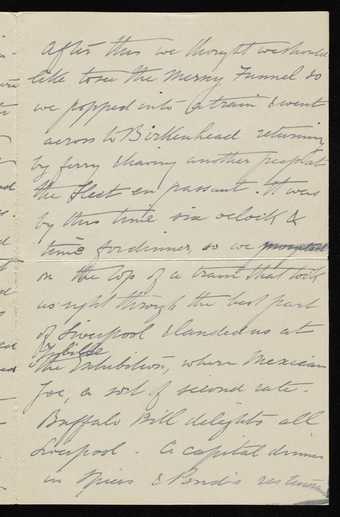 After this we thought we should
like to see the Mersey Tunnel so
we popped into a train & went
across to Birkenhead returning
by ferry & having another peep at
the fleet en passant. It was
by this time six oclock &
time for dinner, so we
on the top of a tram that took
us right through the best part
of Liverpool & landed us at
Jubilee
the Exhibition, where Mexican
Joe, a sort of second rate
Buffalo Bill delights all
Liverpool. A capital dinner
in Spiers & Ponds